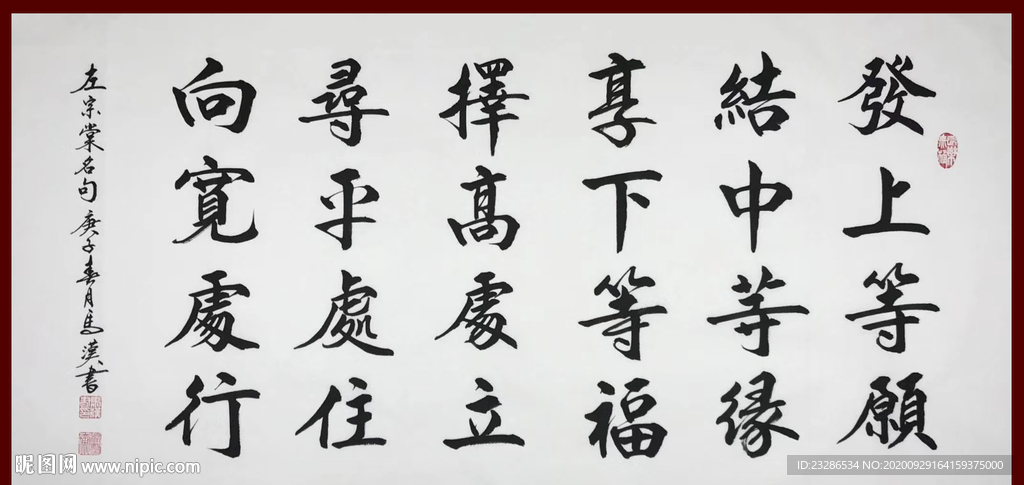 發上等願
結中等緣
享下等福
擇高處立
尋平處住
向寬處行
左宗棠名句庚子春月馬漢書
昵图网 www.nipic.com
ID:23286534 NO:20200929164159375000